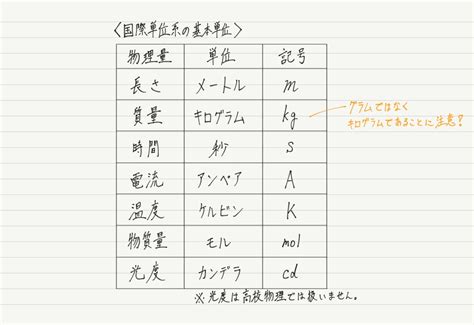 〈国際単位系の基本単位〉
物理量 単位 記号
長さ メートル m
質量 キログラム kg
グラムではなく
キログラムであることに注意?
時間 秒 s
電流 アンペア A
温度 ケルビン K
物質量 モル mol
光度 カンデラ cd
※光度は高校物理では扱いません。